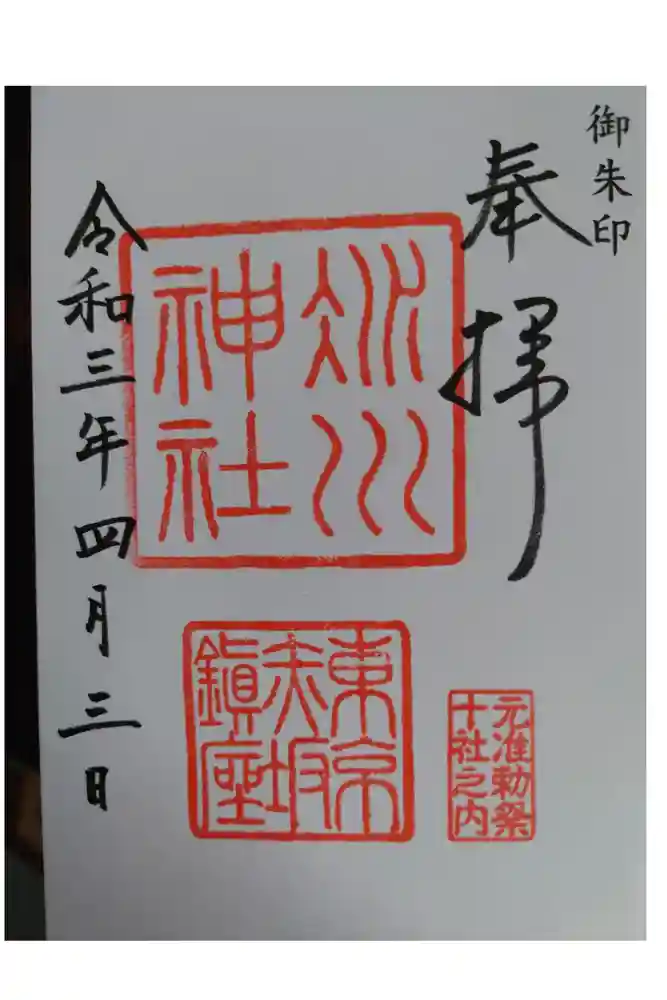 御朱印
奉拝
氷川
神社
東京
赤坂
鎮座
元准勅祭
十社之内
令和三年四月三日